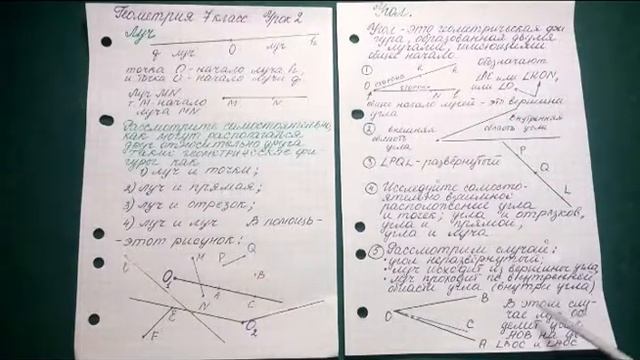 Геометрия 7 класс Урок 2
Луч
g луч O луч h
точка O - начало луча h
и точка O - начало луча g.
Луч MN
т. M - начало
луча MN
M N
Рассмотрите самостоятельно,
как могут располагаться
друг относительно друга
такие геометрические фи
гуры как
1) луч и точки;
2) луч и прямая;
3) луч и отрезок;
4) луч и луч В помощь-
- этот рисунок:
M P Q
O1 B
A C
N
E O2
F
Угол.
Угол - это геометрическая фи
гура, образованная двумя
лучами, имеющими
общее начало
обозначают
① h
сторона
O сторона N
∠HON,
или ∠O
общее начало лучей - это вершина
угла
② внешняя
область
угла
внутренняя
область угла
P
Q
L
③ ∠PQL - развёрнутый
④ Исследуйте самосто-
ятельно взаимное
расположение угла
и точек; угла и отрезков,
угла и прямой,
угла и луча
⑤ Рассмотрим случай:
• угол неразвёрнутый;
• луч исходит из вершины угла,
• луч проходит по внутренней
области угла (внутри угла)
O B
C
A
В этом слу-
чае луч
делит угол
AOB на
∠BOC и ∠AOC